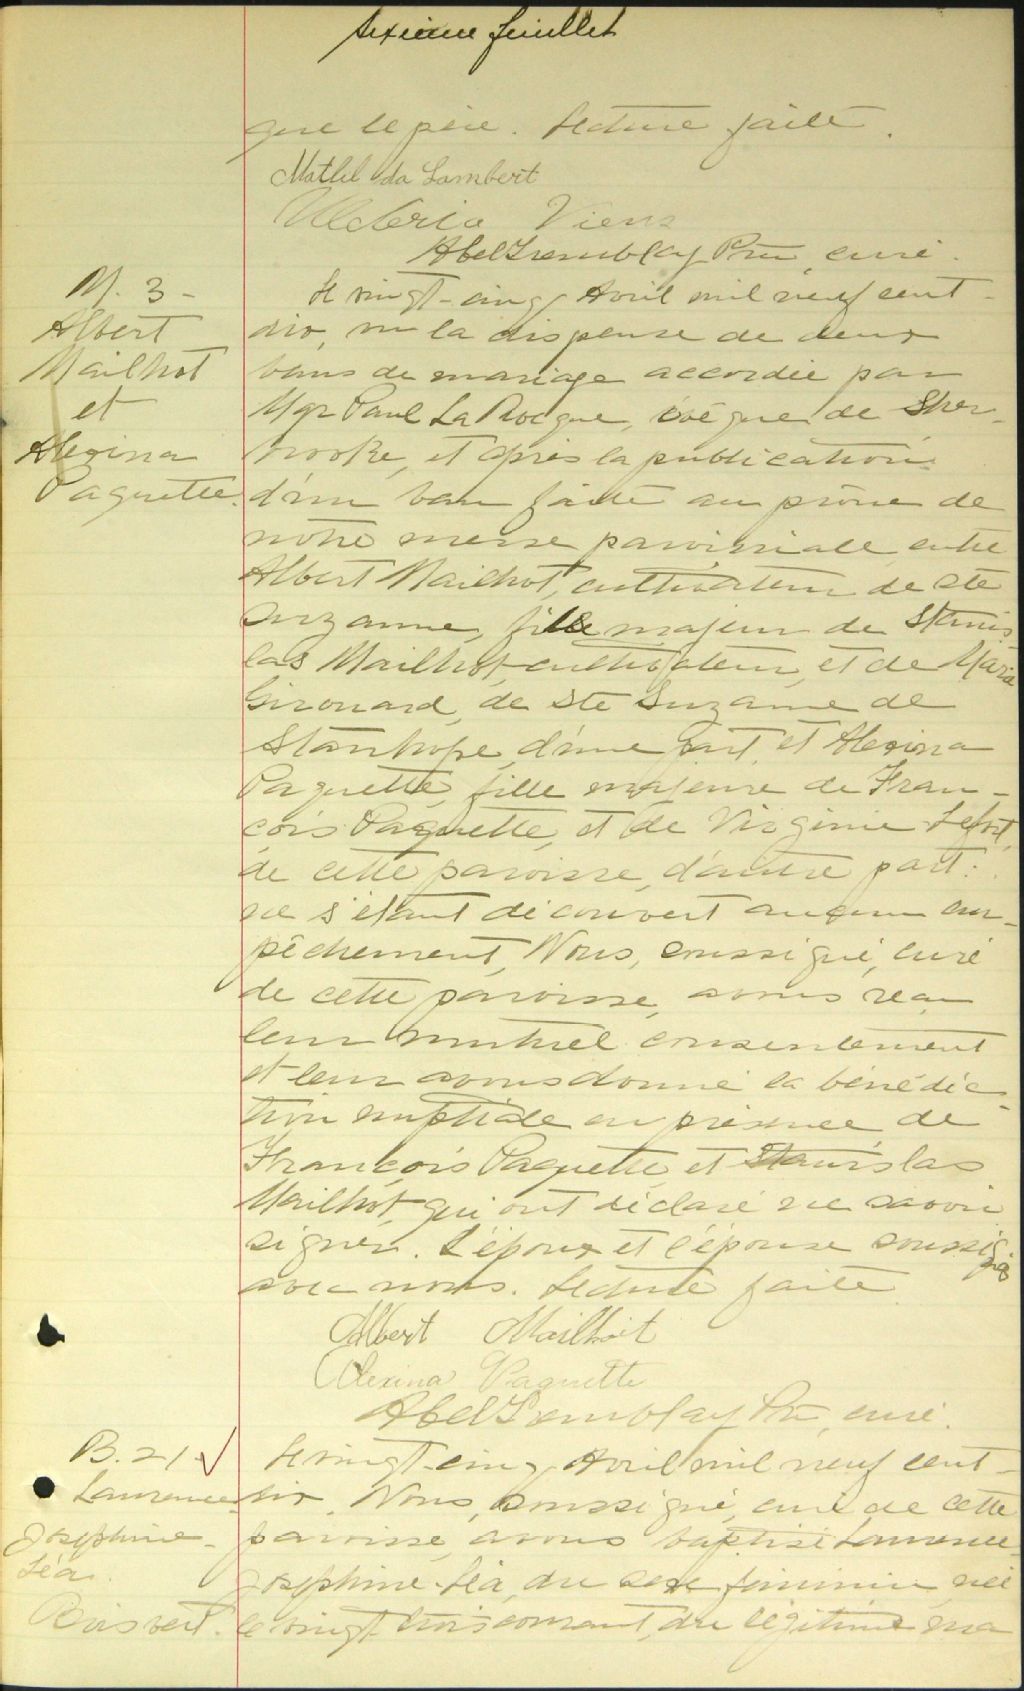 sixième feuillet
que le père. Lecture faite.
Mathilda Lambert
Valeria Viens
Abel Tremblay Ptre, curé.
M. 3 -
Albert
Mailhot
et
Alexina
Paquette.
Le vingt-cinq Avril mil neuf cent-
six, vu la dispense de deux
bans de mariage accordée par
Mgr Paul LaRocque, évêque de Sher-
brooke, et après la publication
d'un ban faite au prône de
notre messe paroissiale entre
Albert Mailhot, cultivateur de Ste
Suzanne, fils majeur de Stanis-
las Mailhot, cultivateur, et de Marie
Girouard, de Ste Suzanne de
Stanhope, d'une part, et Alexina
Paquette, fille majeure de Fran-
çois Paquette, et de Virginie Lefort,
de cette paroisse, d'autre part:
ne s'étant découvert aucun em-
pêchement, Nous, soussigné, curé
de cette paroisse, avons reçu
leur mutuel consentement
et leur avons donné la bénédic-
tion nuptiale en présence de
François Paquette et Stanislas
Mailhot, qui ont déclaré ne savoir
signer. L'époux et l'épouse soussignés
avec nous. Lecture faite
Albert Mailhoit
Alexina Paquette
Abel Tremblay Ptre, curé.
B. 21
Laurence-
Josephine-
Léa.
Boisvert.
Le vingt-cinq Avril mil neuf cent-
six, Nous, soussigné, curé de cette
paroisse, avons baptisé Laurence-
Josephine-Léa, du sexe féminin, née
le vingt-trois courant, du légitime ma